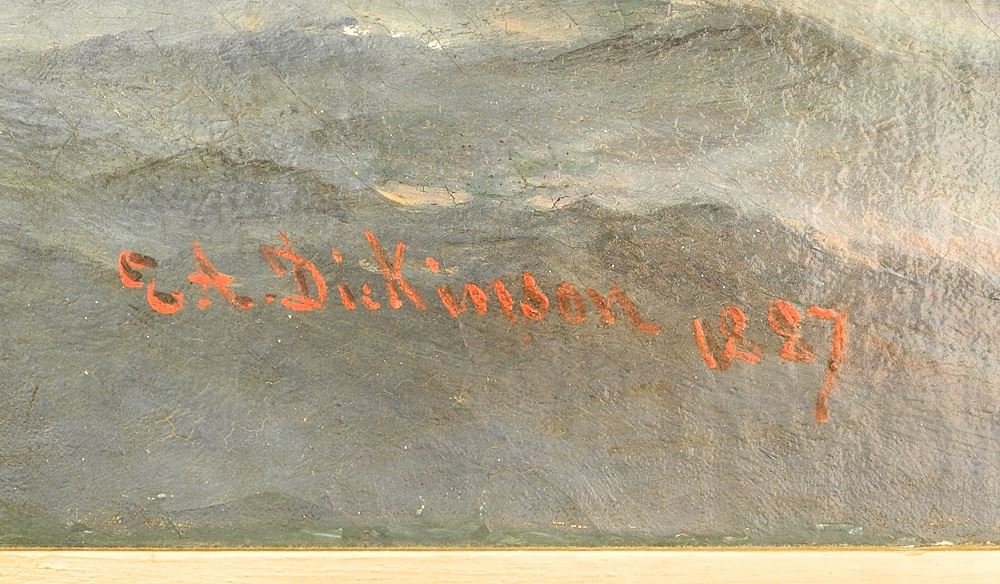 E. A. Dickinson 1887